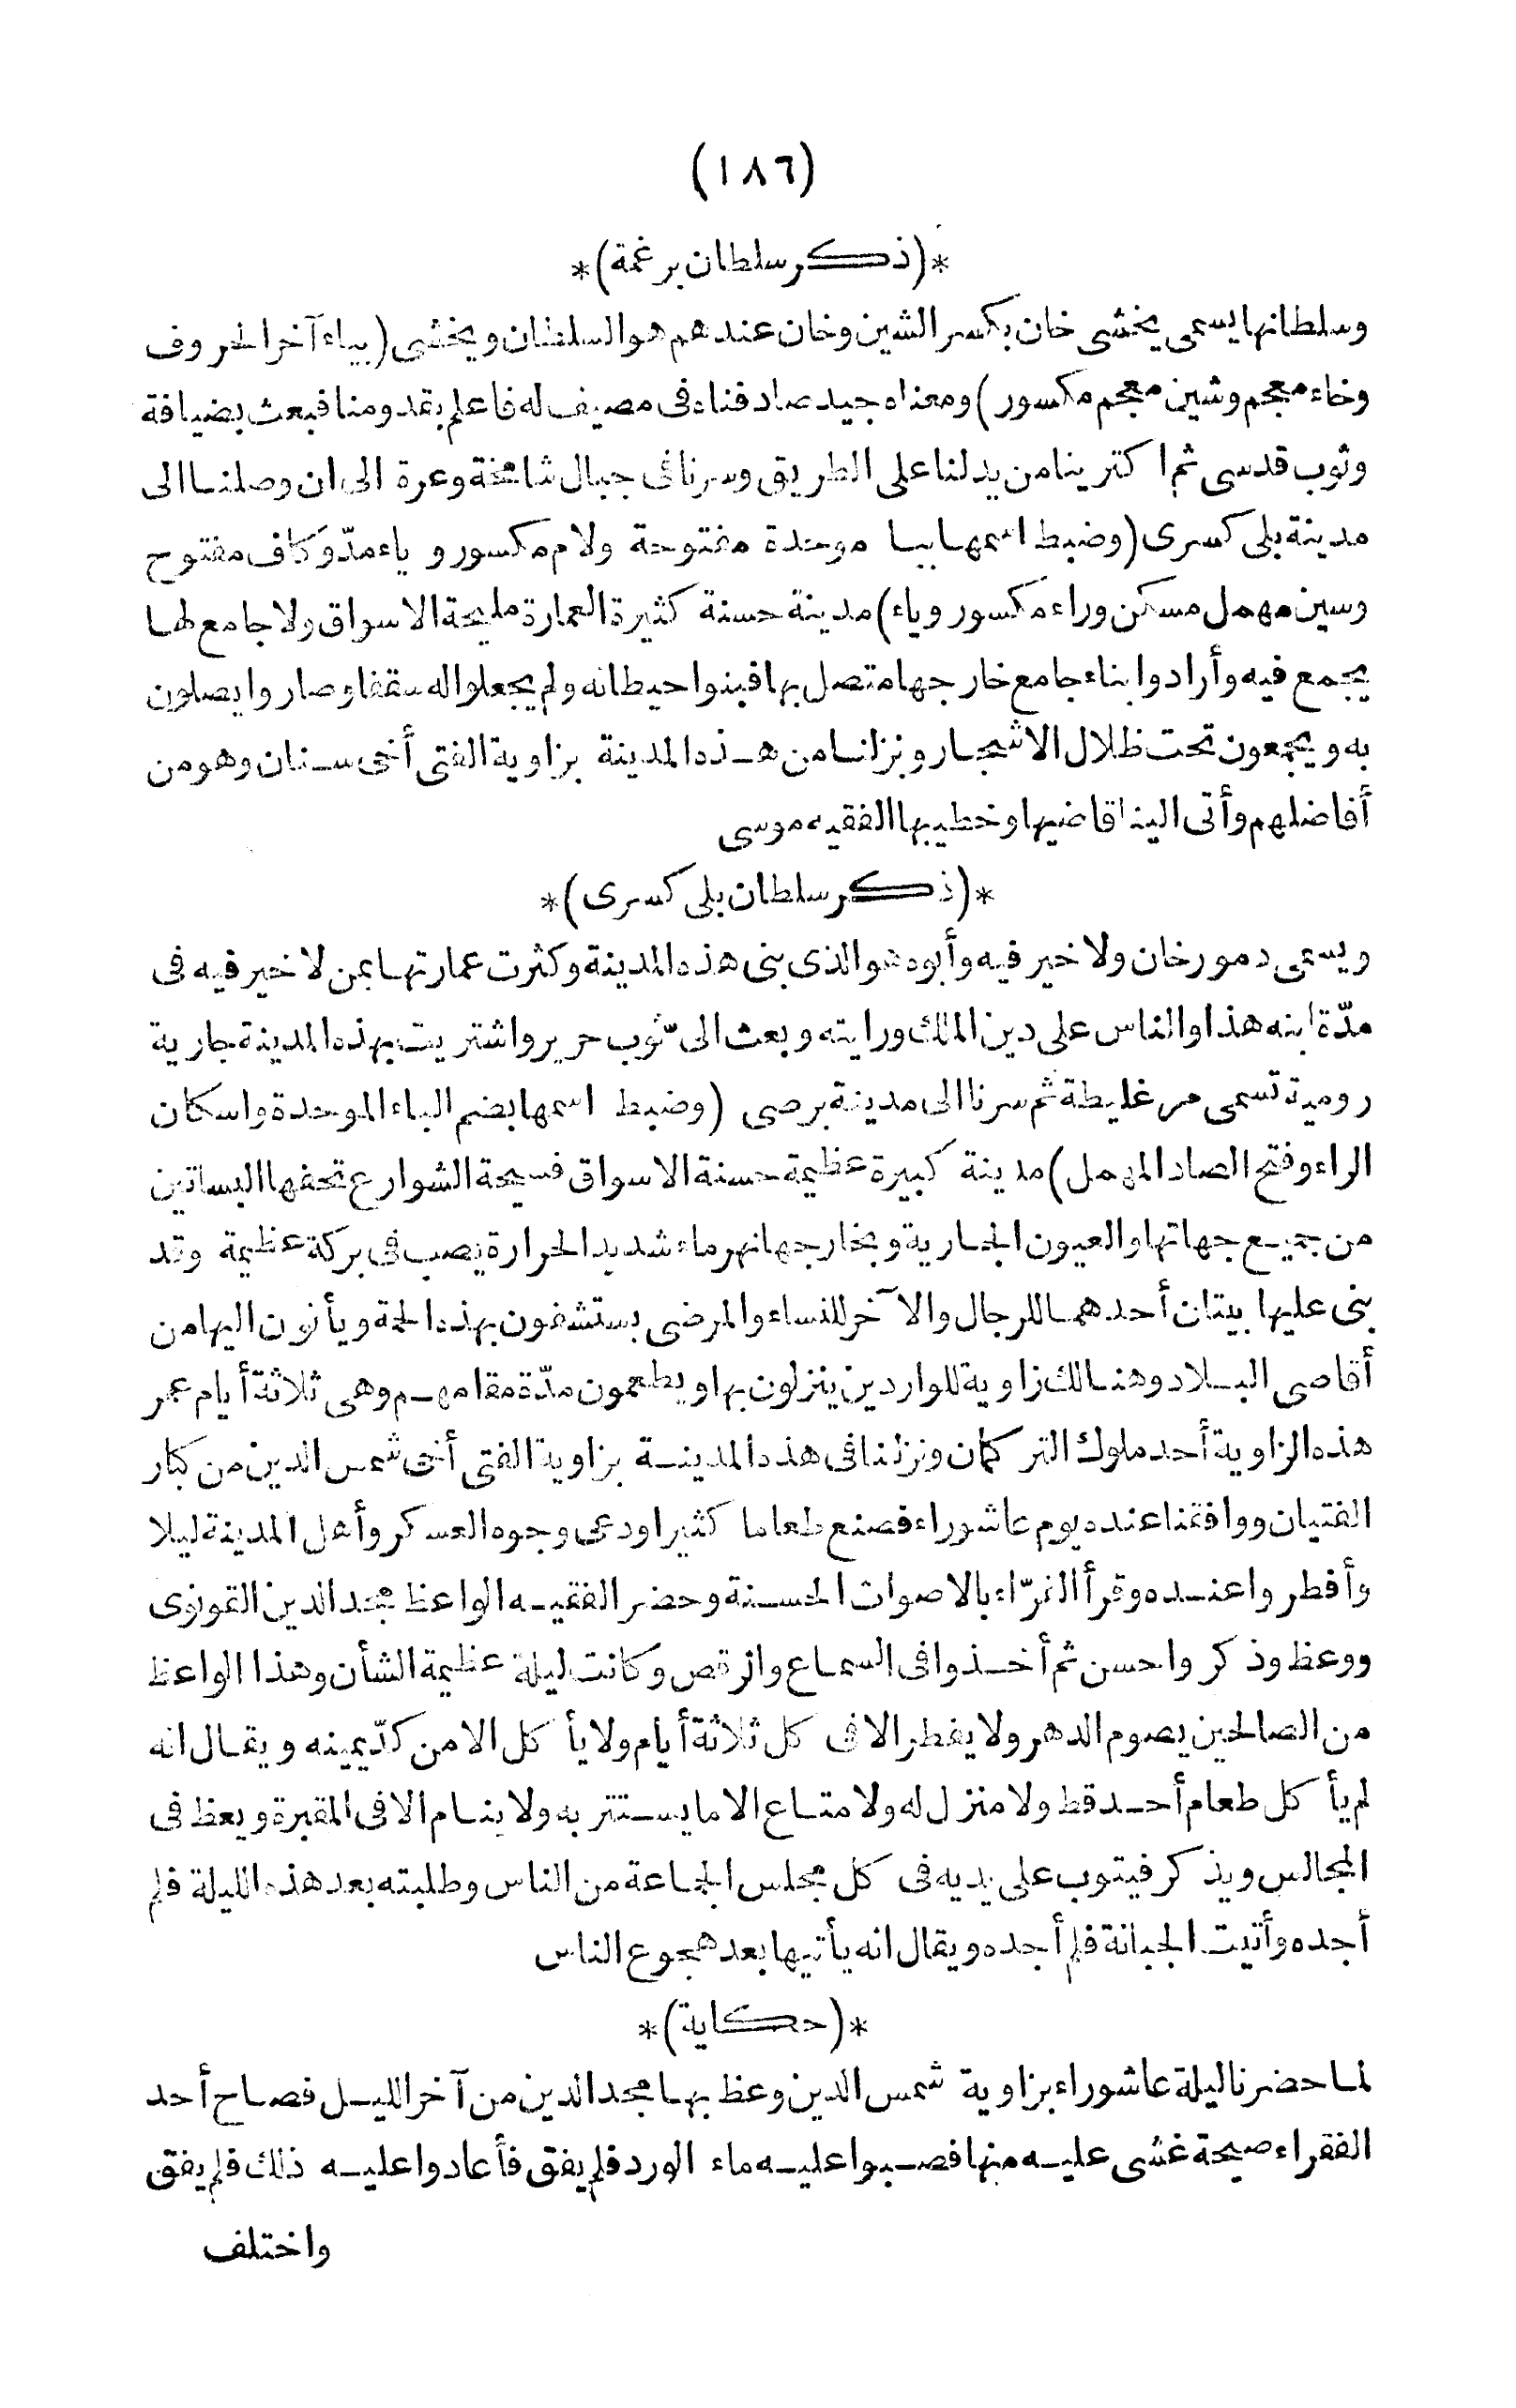 (١٨٦)
*(ذكر سلطان برغمة)*
وسلطانها يسمى يخشى خان بكسر الشين وخان عندهم هو السلطان ويخشى (بياء آخر الحروف
وخاء معجم وشين معجم مكسور) ومعناه جيد صادفناه فى مصيف له فاعلم بقدومنا فبعث بضيافة
وثوب قدسى ثم اكترينا من يدلنا على الطريق وسرنا فى جبال شامخة وعرة الى ان وصلنا الى
مدينة بلى كسرى (وضبط اسمها ببا موحدة مفتوحة ولام مكسور و ياء مدّ وكاف مفتوح
وسين مهمل مسكن وراء مكسور وياء) مدينة حسنة كثيرة العمارة مليحة الاسواق ولا جامع لها
يجمع فيه وأرادوا بناء جامع خارجها متصل بها فبنوا حيطانه ولم يجعلوا له سقفا وصاروا يصلون
به ويجمعون تحت ظلال الاشجار ونزلنا من هذه المدينة بزاوية الفتى أخى سنان وهو من
أفاضلهم وأتى الينا قاضيها وخطيبها الفقيه موسى
*(ذكر سلطان بلى كسرى)*
ويسمى دمور خان ولا خير فيه وأبوه هو الذى بنى هذه المدينة وكثرت عمارتها بمن لا خير فيه فى
مدّة ابنه هذا والناس على دين الملك ورايته وبعث الىّ ثوب حرير واشتريت بهذه المدينة جارية
رومية تسمى مرغليطة ثم سرنا الى مدينة برصى (وضبط اسمها بضم الباء الموحدة واسكان
الراء وفتح الصاد المهمل) مدينة كبيرة عظيمة حسنة الاسواق فسيحة الشوارع تحفها البساتين
من جميع جهاتها والعيون الجارية وبخارجها نهر ماء شديد الحرارة يصب فى بركة عظيمة وقد
بنى عليها بيتان أحدهما للرجال والآخر للنساء والمرضى يستشفون بهذه الحمة ويأتون اليها من
أقاصى البلاد وهنالك زاوية للواردين ينزلون بها ويطعمون مدّة مقامهم وهى ثلاثة أيام عمر
هذه الزاوية أحد ملوك التركمان ونزلنا فى هذه المدينة بزاوية الفتى أخى شمس الدين من كبار
الفتيان ووافقنا عنده يوم عاشوراء فصنع طعاما كثيرا ودعى وجوه العسكر وأهل المدينة ليلا
وأفطروا عنده وقرأ القرّاء بالاصوات الحسنة وحضر الفقيه الواعظ مجد الدين القونوى
ووعظ وذكر واحسن ثم أخذوا فى السماع والرقص وكانت ليلة عظيمة الشأن وهذا الواعظ
من الصالحين يصوم الدهر ولا يفطر الا فى كل ثلاثة أيام ولا يأكل الا من كدّ يمينه ويقال انه
لم يأكل طعام أحد قط ولا منزل له ولا متاع الا ما يستتر به ولا ينام الا فى المقبرة ويعظ فى
المجالس ويذكر فيتوب على يديه فى كل مجلس الجماعة من الناس وطلبته بعد هذه الليلة فلم
أجده وأتيت الجبانة فلم أجده ويقال انه يأتيها بعد هجوع الناس
*(حكاية)*
لما حضرنا ليلة عاشوراء بزاوية شمس الدين وعظ بها مجد الدين من آخر الليل فصاح أحد
الفقراء صيحة غشى عليه منها فصبوا عليه ماء الورد فلم يفق فأعادوا عليه ذلك فلم يفق
واختلف